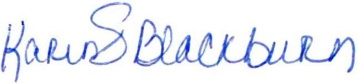 Karin S Blackburn